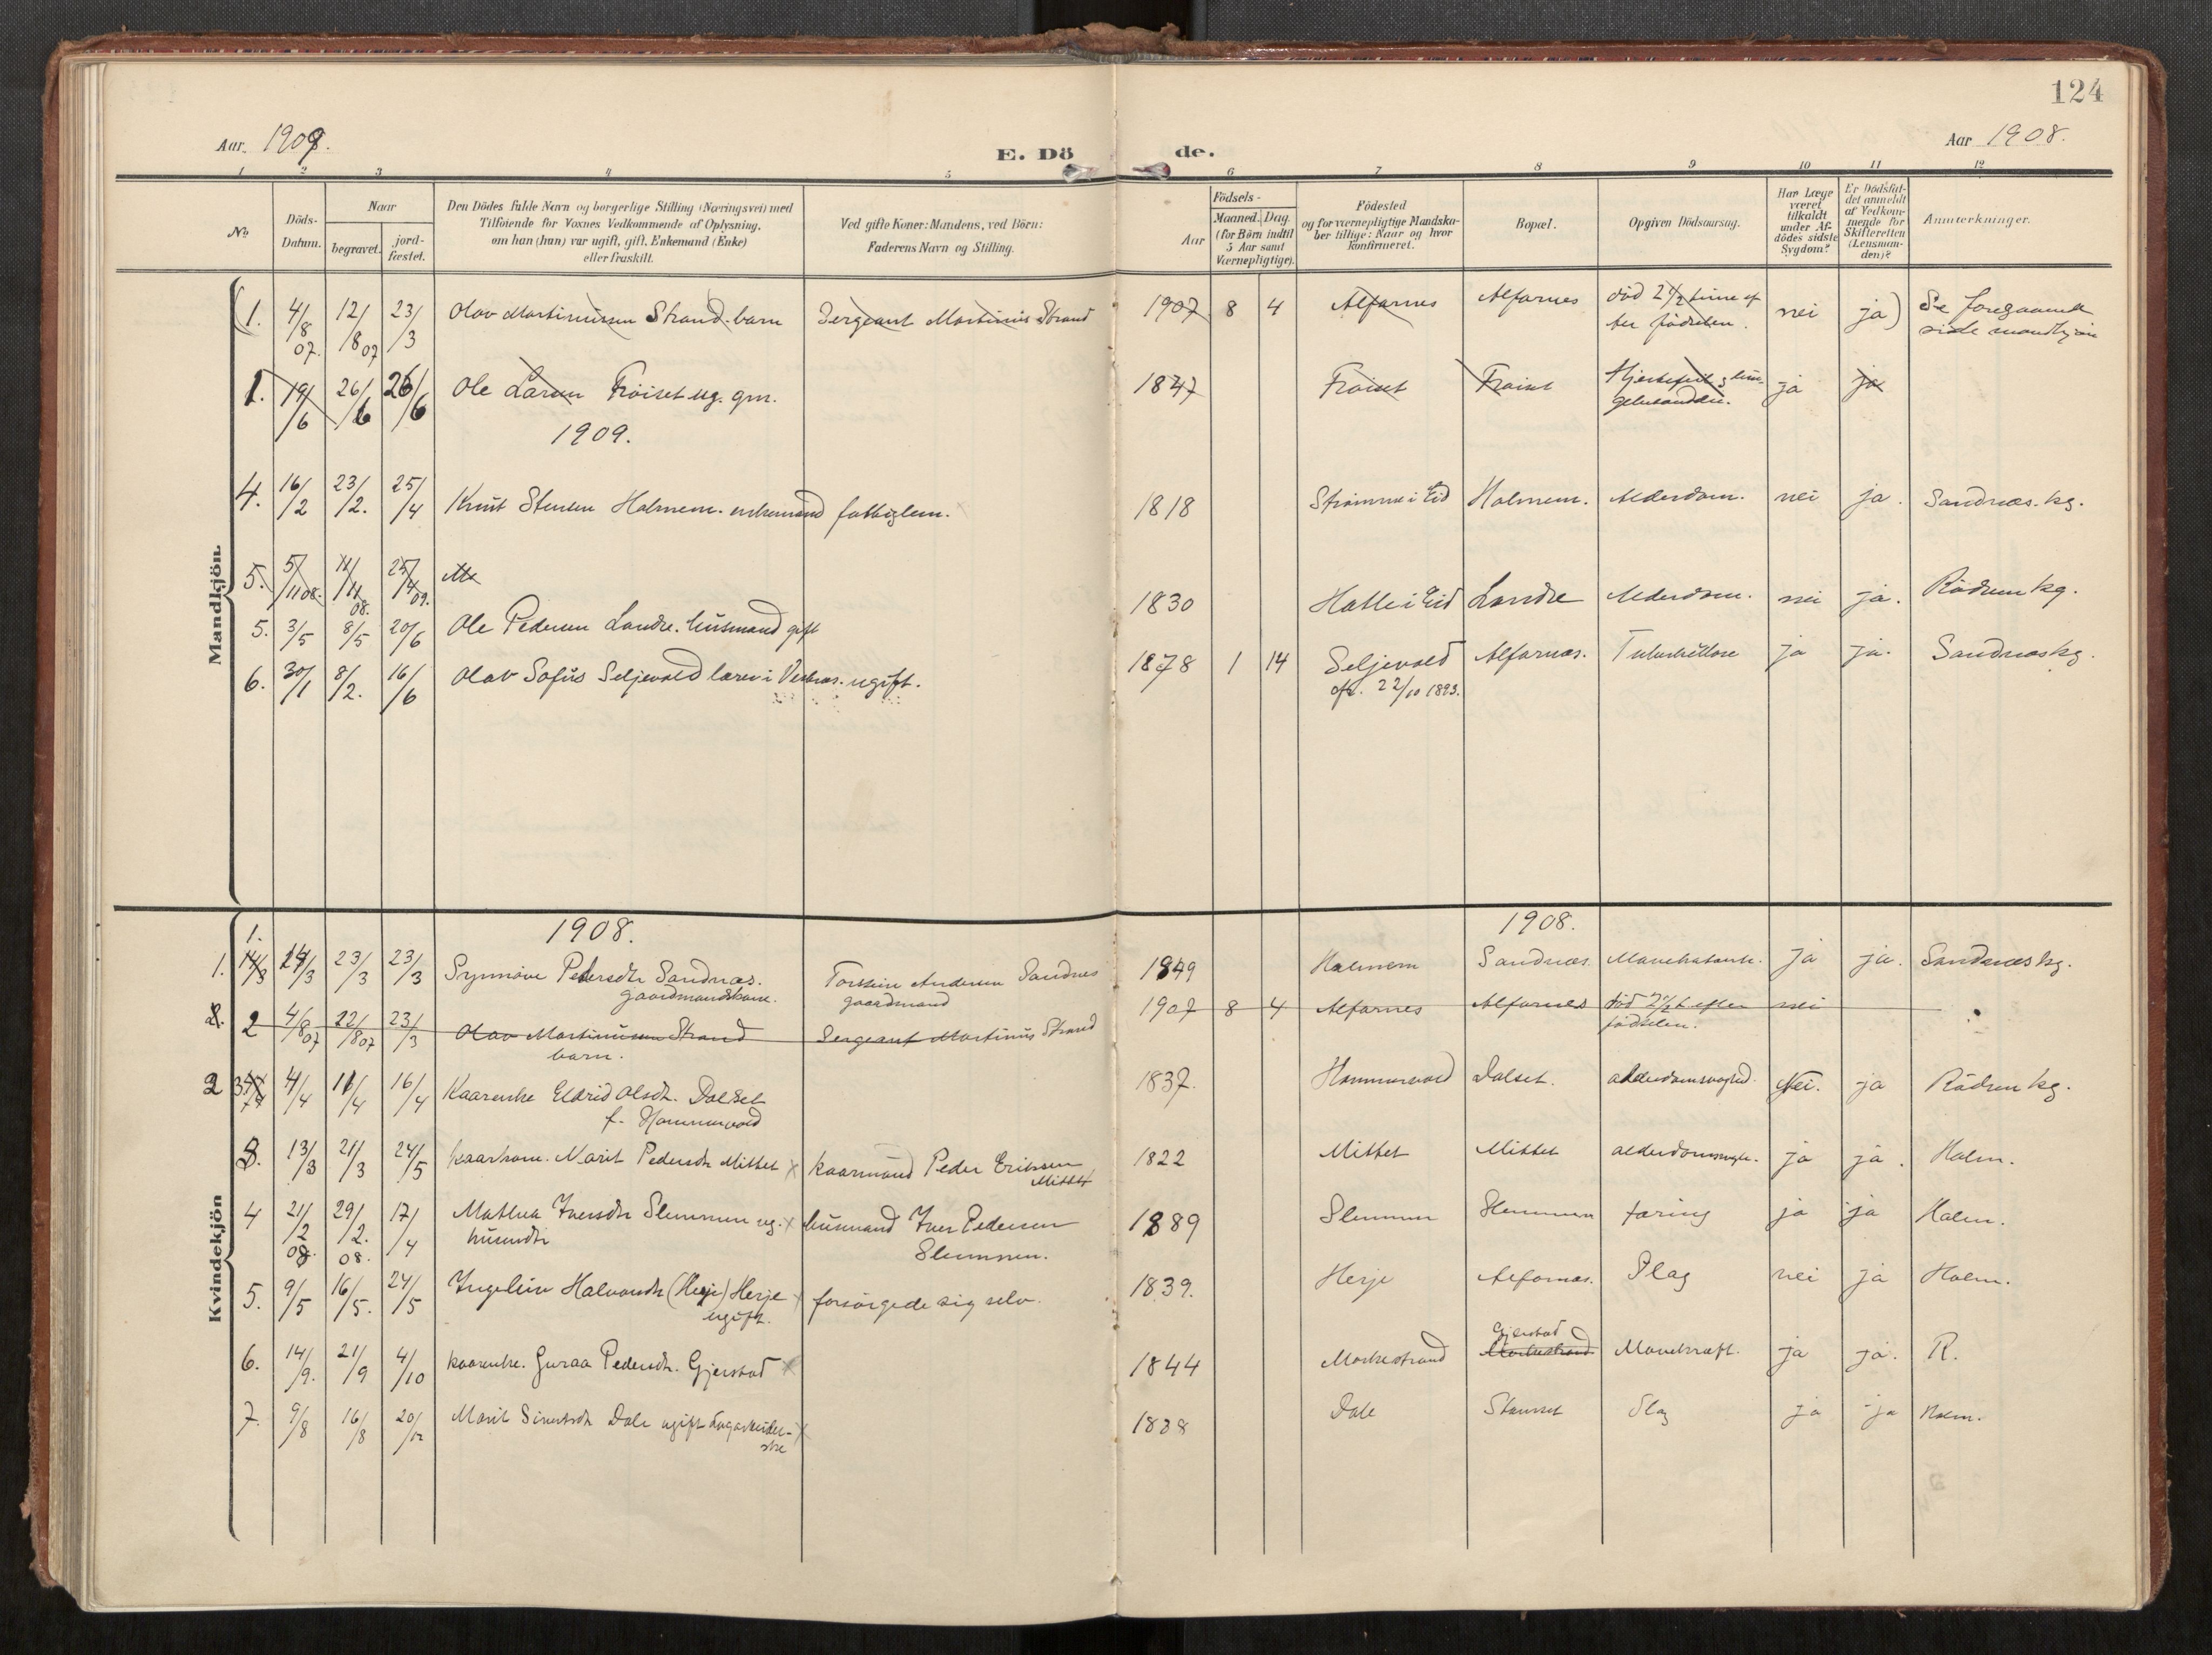 124
Aar. 1909.
E. Döde.
Aar 1908.
1 2 3 4 5 6 7 8 9 10 11 12
No.
Döds-Datum.
Naar
begravet.
jord-fæstet.
Den Dödes fulde Navn og borgerlige Stilling (Næringsvei) med
Tilföiende for Voxnes Vedkommende af Oplysning,
om han (hun) var ugift, gift, Enkemand (Enke)
eller fraskilt.
Ved gifte Koner: Mandens, ved Börn:
Faderens Navn og Stilling.
Födsels-
Aar
Maaned. Dag.
(for Börn indtil
5 Aar samt
Værnepligtige).
Födested
og for værnepligtige Mandska-
ber tillige: Naar og hvor
konfirmeret.
Bopæl.
Opgiven Dödsaarsag.
Har Læge
været
tilkaldt
under Af-
dödes sidste
Sygdom?
Er Dödsfal-
det anmeldt
af Vedkom-
mende for
Skifteretten
(Lensman-
den)?
Anmærkninger.
Mandkjön.
(1. 4/8 07. 12/8 07 23/3 Olav Martinussen Strand. barn Sergeant Martinus Strand 1907 8 4 Alfarnes Alfarnes död 2 1/2 time ef
ter födselen. nei ja) Se foregaaende
side mandkjön
1. 19/6 26/6 26/6 Ole Larsen Fröiset ug. gm. 1847 Fröiset Fröiset ja ja
1909.
4. 16/2 23/2. 25/4 Knut Stensen Holmem. enkemand fattiglem. 1818 Strömme i Eid Holmem. Alderdom. nei ja. Sandnæs. kg.
5. 5/11 08. 11/11 08. 25/4 09.
5. 3/5 8/5 20/6 Ole Pedersen Landre. husmand gift 1830 Hatle i Eid Landre Alderdom. nei ja. Rödven kg.
6. 30/1 8/2. 16/6 Olav Sofus Seljevold lærer i ugift. 1878 1 14 Seljevold Alfarnæs. Tuberkulose ja ja. Sandnæs kg.
22/10 1893.
Kvindekjön
1908. 1908.
1.
1. 14/3 14/3 23/3 23/3 Synnöve Pedersdtr Sandnæs. Torstein Andersen Sandnes 1849 Holmem Sandnæs. ja ja. Sandnæs kg.
gaardmandskone. gaardmand
2. 2 4/8 07 22/8 07 23/3 Olav Martinussen Strand Sergeant Martinus Strand 1907 8 4 Alfarnes Alfarnes död 2 1/2 t. efter nei
barn. födselen.
2 3 4/4 11/4 16/4 Kaarenke Eldrid Olsdt. Dalset 1837. Hammervold Dalset. alderdomssvaghed. Nei. ja Rödven kg.
f. Hammervold
3. 13/3 21/3 24/5 kaarkone. Marit Pedersdtr Mittet x kaarmand Peder Eriksen 1822 Mittet Mittet ja ja. Holm.
Mittet
4 21/2 08. 29/2. 08. 17/4 Mathea Iversdtr Slemmen ug. x husmand Iver Pedersen 1889 Slemmen Slemmen tæring ja ja Holm.
husmdtr Slemmen.
5. 9/5 16/5. 24/5 Ingelein Halvorsdtr (Herje) Herje x forsörgede sig selv. 1839. Herje Alfarnæs. Slag nei ja Holm.
ugift.
6. 14/9. 21/9 4/10 kaarenke. Guraa Pedersdtr. Gjerstad x 1844 Morkestrand Gjerstad Mavekræft. ja ja. R.
Morkestrand
7. 9/8 16/8 20/12 Marit Sivertsdtr Dale ugift dagarbeider- x 1838 Dale Slag ja ja Holm.
ske